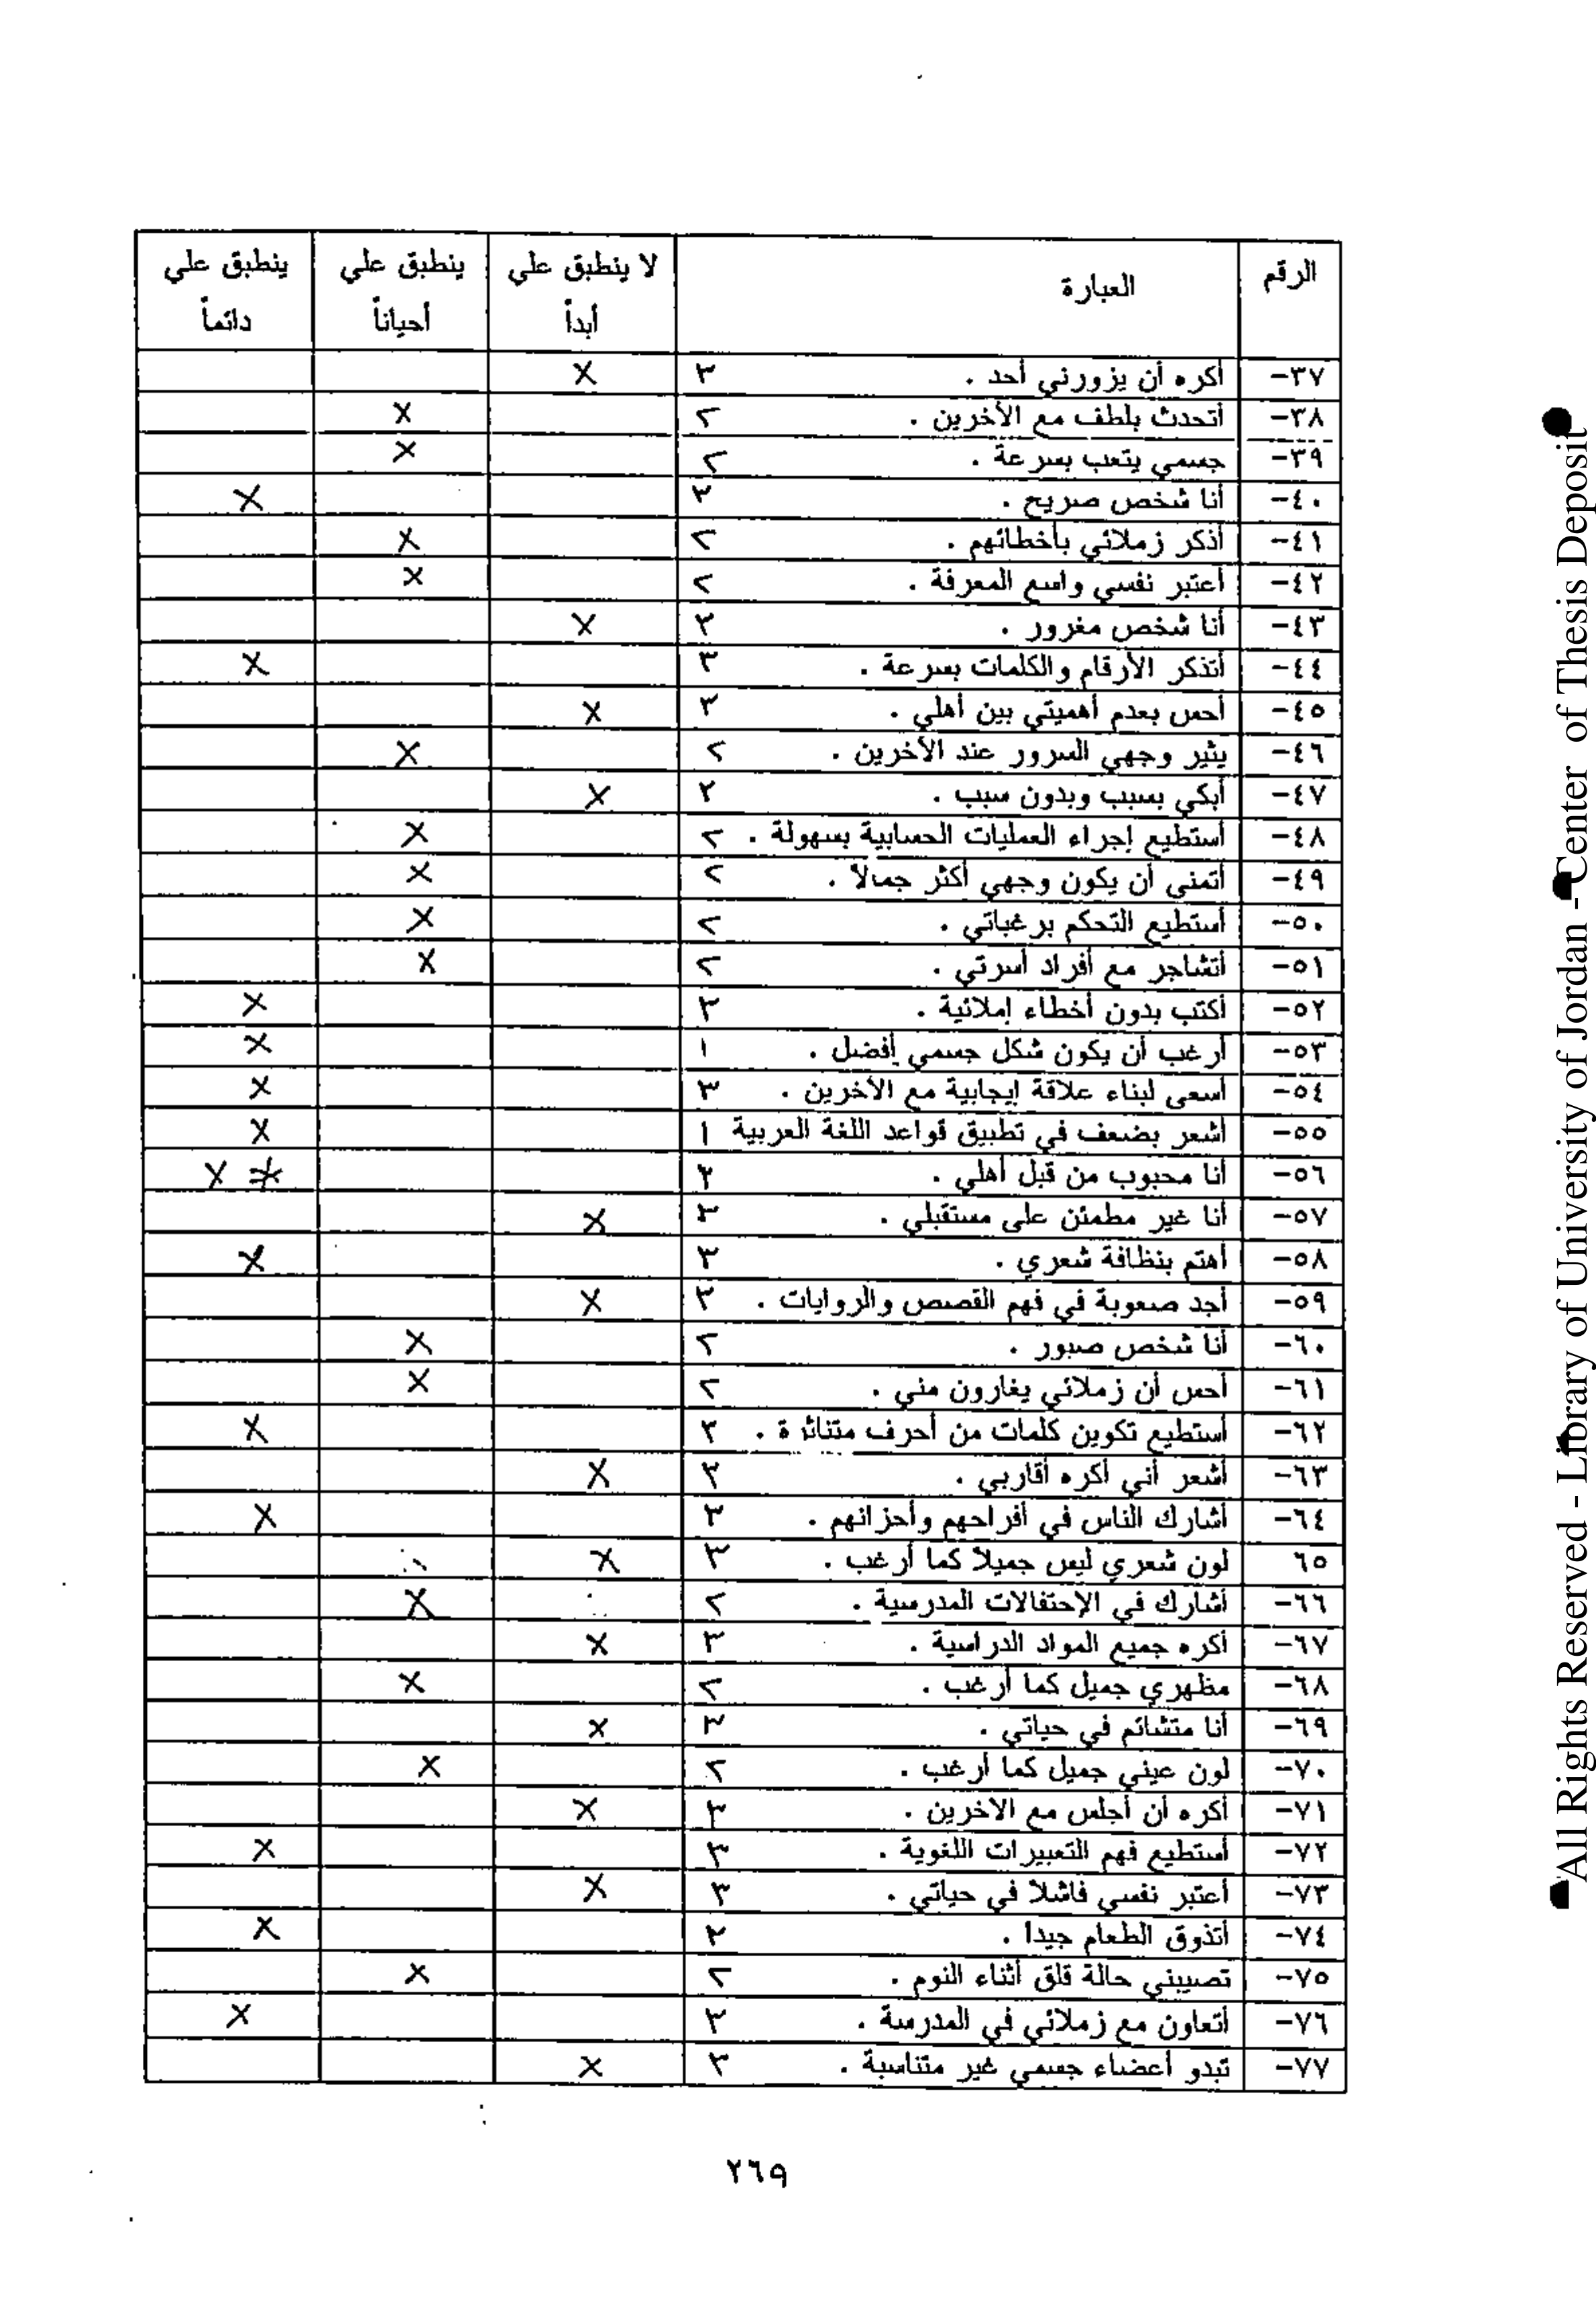 الرقم العبارة لا ينطبق علي أبداً ينطبق علي أحياناً ينطبق علي دائماً
٣٧- أكره أن يزورني أحد . ٣ X
٣٨- أتحدث بلطف مع الأخرين . ٢ X
٣٩- جسمي يتعب بسرعة . ٢ X
٤٠- أنا شخص صريح . ٣ X
٤١- أذكر زملائي بأخطائهم . ٢ X
٤٢- أعتبر نفسي واسع المعرفة . ٢ X
٤٣- أنا شخص مغرور . ٣ X
٤٤- أتذكر الأرقام والكلمات بسرعة . ٣ X
٤٥- أحس بعدم أهميتي بين أهلي . ٣ X
٤٦- يثير وجهي السرور عند الأخرين . ٢ X
٤٧- أبكي بسبب وبدون سبب . ٣ X
٤٨- أستطيع إجراء العمليات الحسابية بسهولة . ٢ X
٤٩- أتمنى أن يكون وجهي أكثر جمالاً . ٢ X
٥٠- أستطيع التحكم برغباتي . ٢ X
٥١- أتشاجر مع أفراد أسرتي . ٢ X
٥٢- أكتب بدون أخطاء إملائية . ٣ X
٥٣- أرغب أن يكون شكل جسمي أفضل . ١ X
٥٤- أسعى لبناء علاقة إيجابية مع الأخرين . ٣ X
٥٥- أشعر بضعف في تطبيق قواعد اللغة العربية ١ X
٥٦- أنا محبوب من قبل أهلي . ٣ X
٥٧- أنا غير مطمئن على مستقبلي . ٣ X
٥٨- أهتم بنظافة شعري . ٣ X
٥٩- أجد صعوبة في فهم القصص والروايات . ٣ X
٦٠- أنا شخص صبور . ٢ X
٦١- أحس أن زملائي يغارون مني . ٢ X
٦٢- أستطيع تكوين كلمات من أحرف متناثرة . ٣ X
٦٣- أشعر أني أكره أقاربي . ٣ X
٦٤- أشارك الناس في أفراحهم وأحزانهم . ٣ X
٦٥ لون شعري ليس جميلاً كما أرغب . ٣ X
٦٦- أشارك في الإحتفالات المدرسية . ٢ X
٦٧- أكره جميع المواد الدراسية . ٣ X
٦٨- مظهري جميل كما أرغب . ٢ X
٦٩- أنا متشائم في حياتي . ٣ X
٧٠- لون عيني جميل كما أرغب . ٢ X
٧١- أكره أن أجلس مع الاخرين . ٣ X
٧٢- أستطيع فهم التعبيرات اللغوية . ٣ X
٧٣- أعتبر نفسي فاشلاً في حياتي . ٣ X
٧٤- أتذوق الطعام جيداً . ٣ X
٧٥- تصيبني حالة قلق أثناء النوم . ٢ X
٧٦- أتعاون مع زملائي في المدرسة . ٣ X
٧٧- تبدو أعضاء جسمي غير متناسبة . ٣ X
٢٦٩
All Rights Reserved - Library of University of Jordan - Center of Thesis Deposit